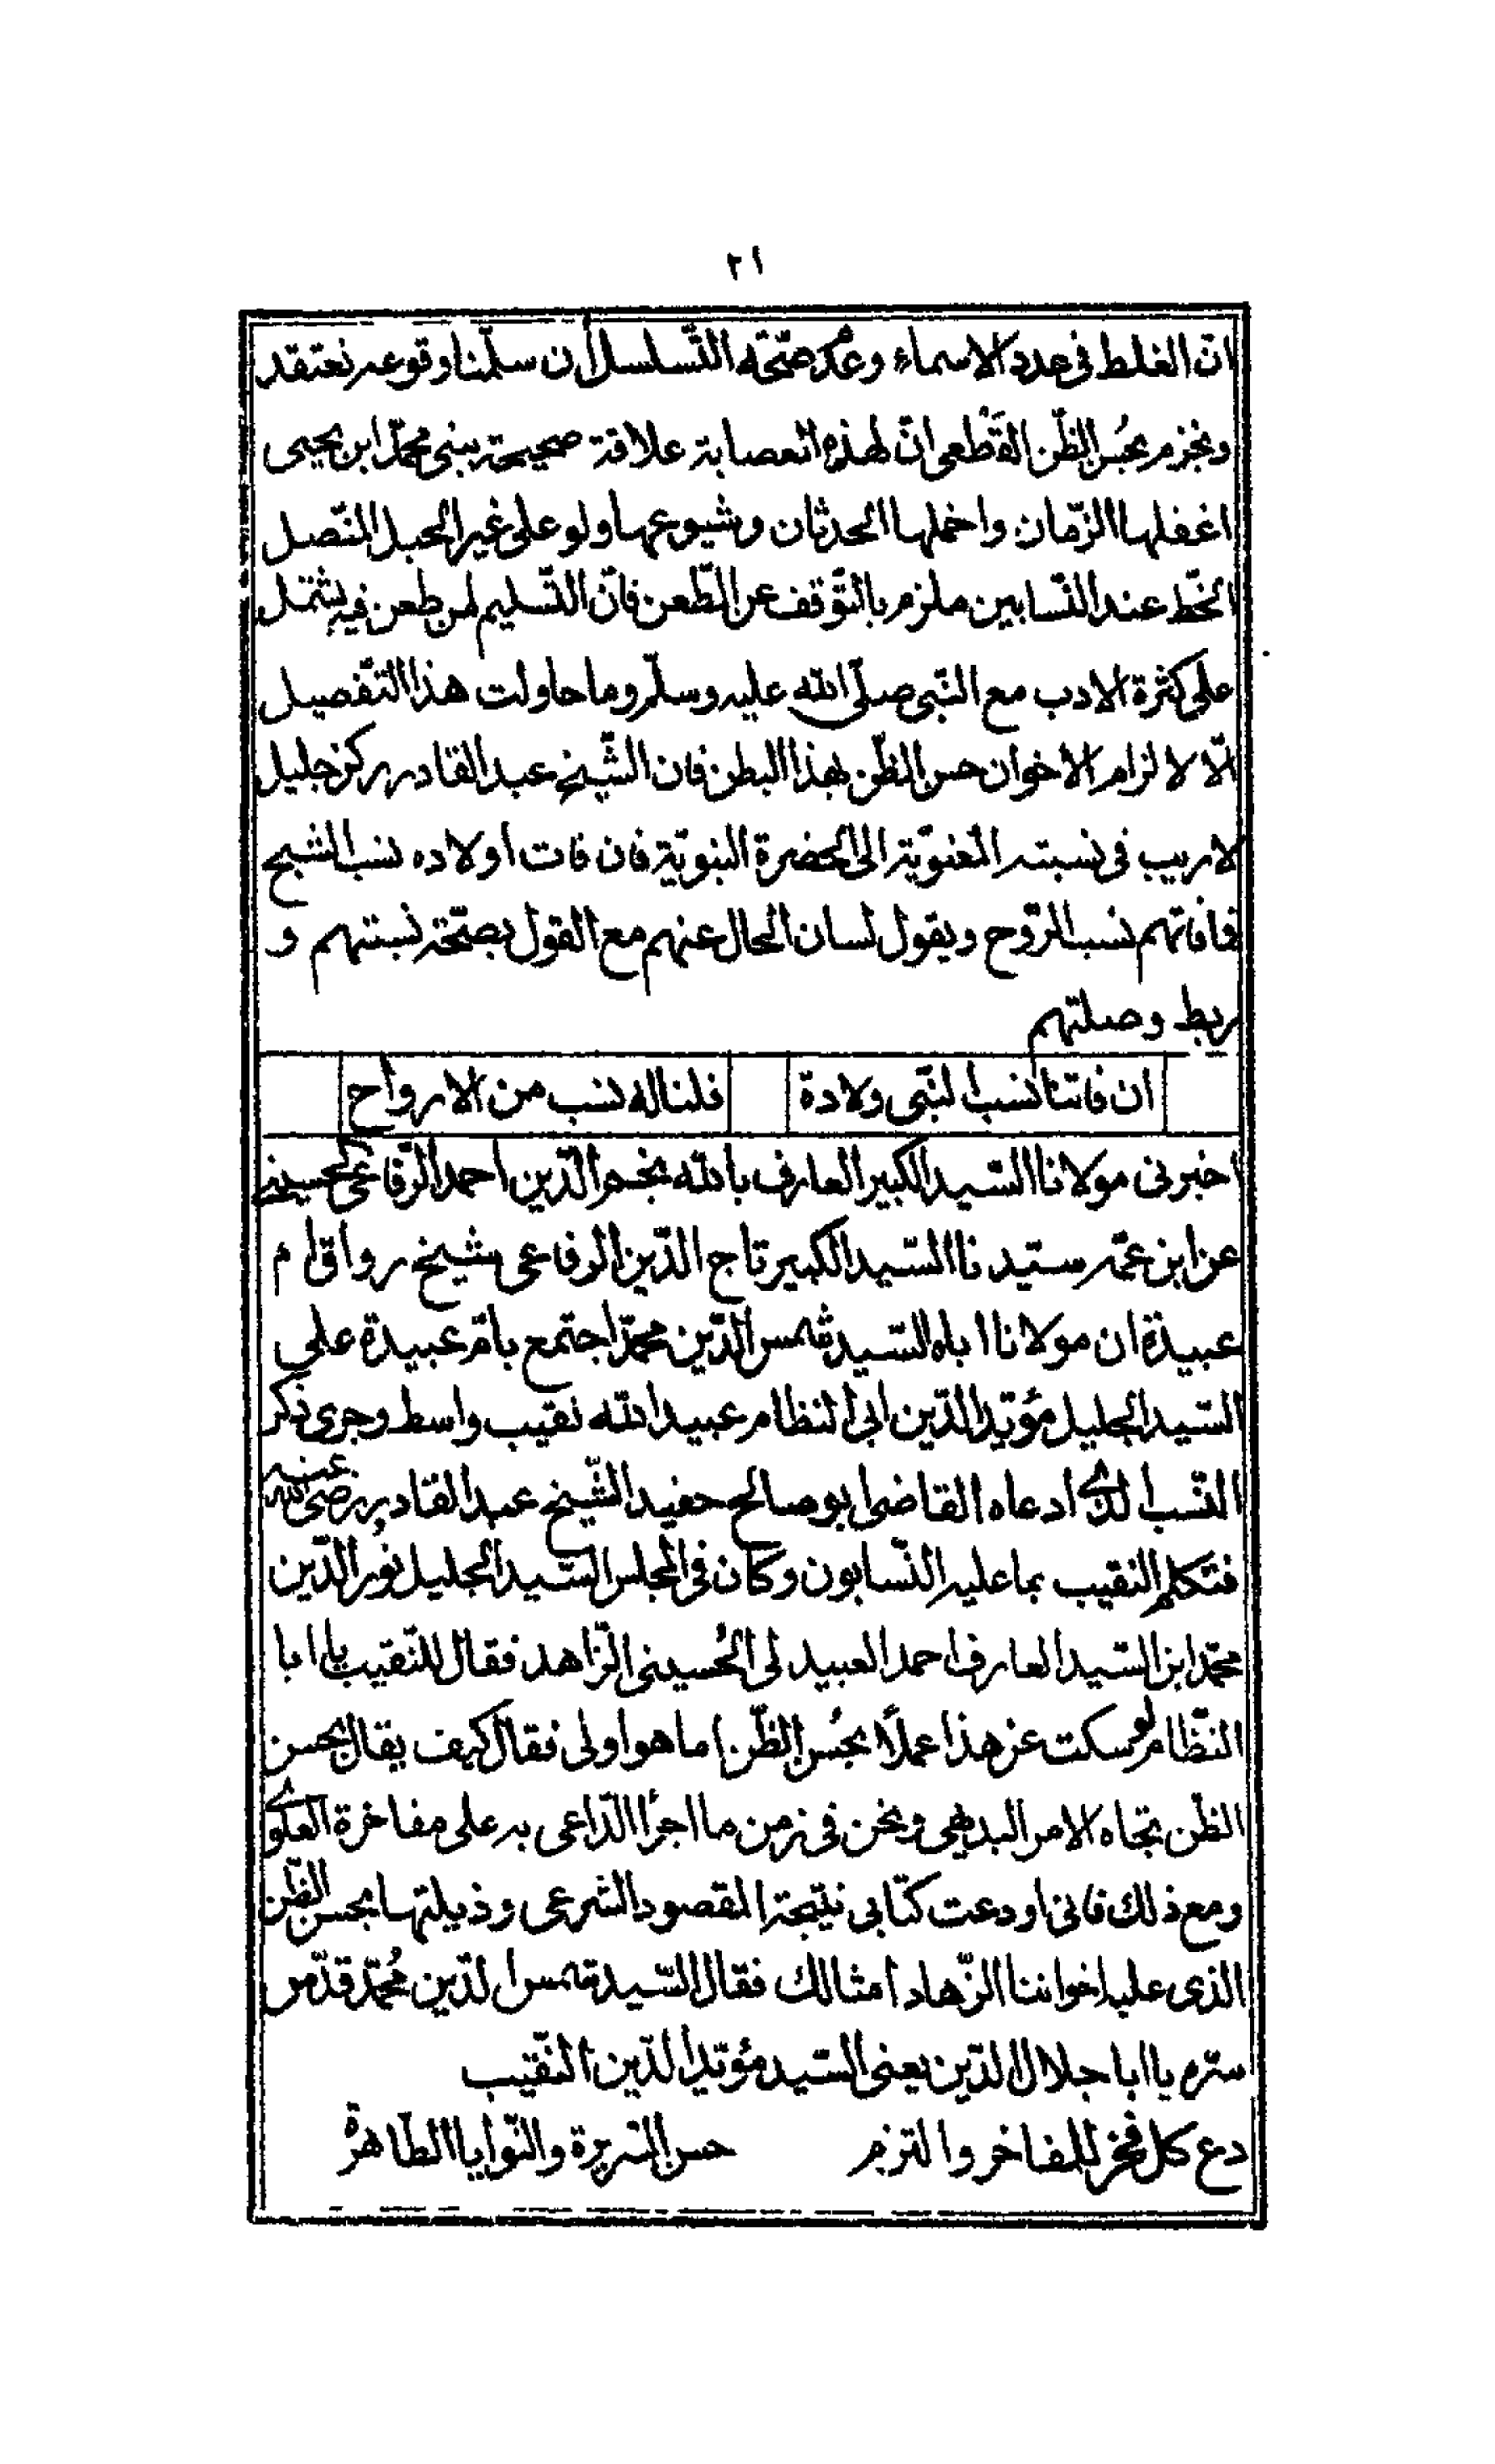 ٢١
ان الغلط فى عدد الاسماء وعدم صحّته التّسلسل أن سلّمنا وقوعه نعتقد
ونجزم بحُسن الظّن القَطعى انّ لهذه العصابة علاقة صحيحة ببنى محمّد ابن يحيى
اغفلها الزّمان واخملها الحدثان وشيوعها ولو على غير الحبل المتّصل
الخّط عند النّسابين ملزم بالتّوقف عن الطّعن فانّ التّسليم لمن طعن فيه يشتمل
على كثرة الادب مع النّبى صلّى الله عليه وسلّم وما حاولت هذا التّفصيل
الّا لالزام الاخوان حسن الظّن بهذا البطن فان الشّيخ عبد القادر ركن جليل
لاريب فى نسبته المعنويّة الى الحضرة النبويّة فان فات اولاده نسب الشبح
فافاتهم نسب الرّوح ويقول لسان الحال عنهم مع القول بصحّة نسبتهم و
ربط وصلتهم
ان فاتنا نسب النّبى ولادة فلنا له نسب من الارواح
اخبرنى مولانا السّيد الكبير العارف بالله نجم الدّين احمد الرّفاعى الحسينى
عن ابن عمّه سيّدنا السّيد الكبير تاج الدّين الرفاعى شيخ رواق ام
عبيدة ان مولانا اباه السّيد شمس الدّين محمّد اجتمع بامّ عبيدة على
السّيد الجليل مؤيّد الدّين ابى النظام عبيد الله نقيب واسط وجرى ذكر
النّسب الذى ادعاه القاضى ابو صالح حفيد الشّيخ عبد القادر رضى الله عنه
فتكلم النقيب بما عليه النّسابون وكان فى المجلس السّيد الجليل نور الدّين
محمّد ابن السّيد العارف احمد العبيد لى الحُسينى الزّاهد فقال للنّقيب يا ابا
النّظام لو سكت عن هذا عملًا بحُسن الظّن اما هو اولى فقال كيف يقال بحسن
الظّن تجاه الامر البديهى ونحن فى زمن ما اجرأ الدّاعى به على مفاخرة العلوى
ومع ذلك فانى اودعت كتابى نتيجة المقصود الشرعى وذيلتها بحسن الظّن
الذى عليه اخواننا الزّهاد امثالك فقال السّيد شمس الدّين مُحمّد قدّس
سّره يا ابا جلال الدّين يعنى السّيد مؤيّد الدّين النّقيب
دع كل فخر للمفاخر والتزم حسن السّريرة والنّوايا الطّاهرة